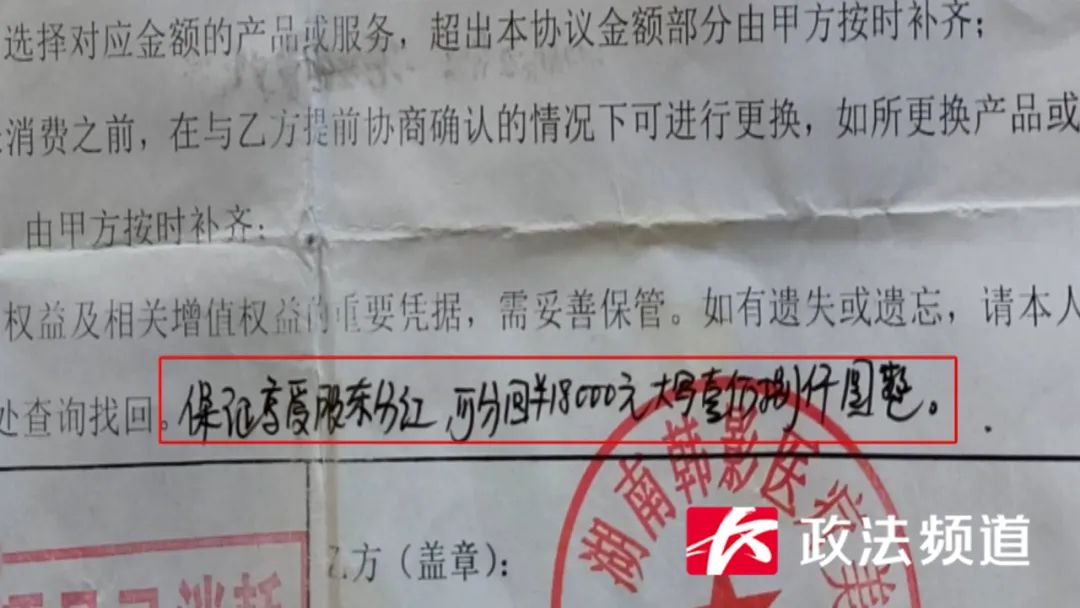 选择对应金额的产品或服务，超出本协议金额部分由甲方按时补齐；
消费之前，在与乙方提前协商确认的情况下可进行更换，如所更换产品或
由甲方按时补齐；
权益及相关增值权益的重要凭据，需妥善保管。如有遗失或遗忘，请本人
处查询找回。保证享受股东分红，可分回¥18000元大写壹万捌仟圆整。
湖南韩影医疗美
政法频道
乙方（盖章）：